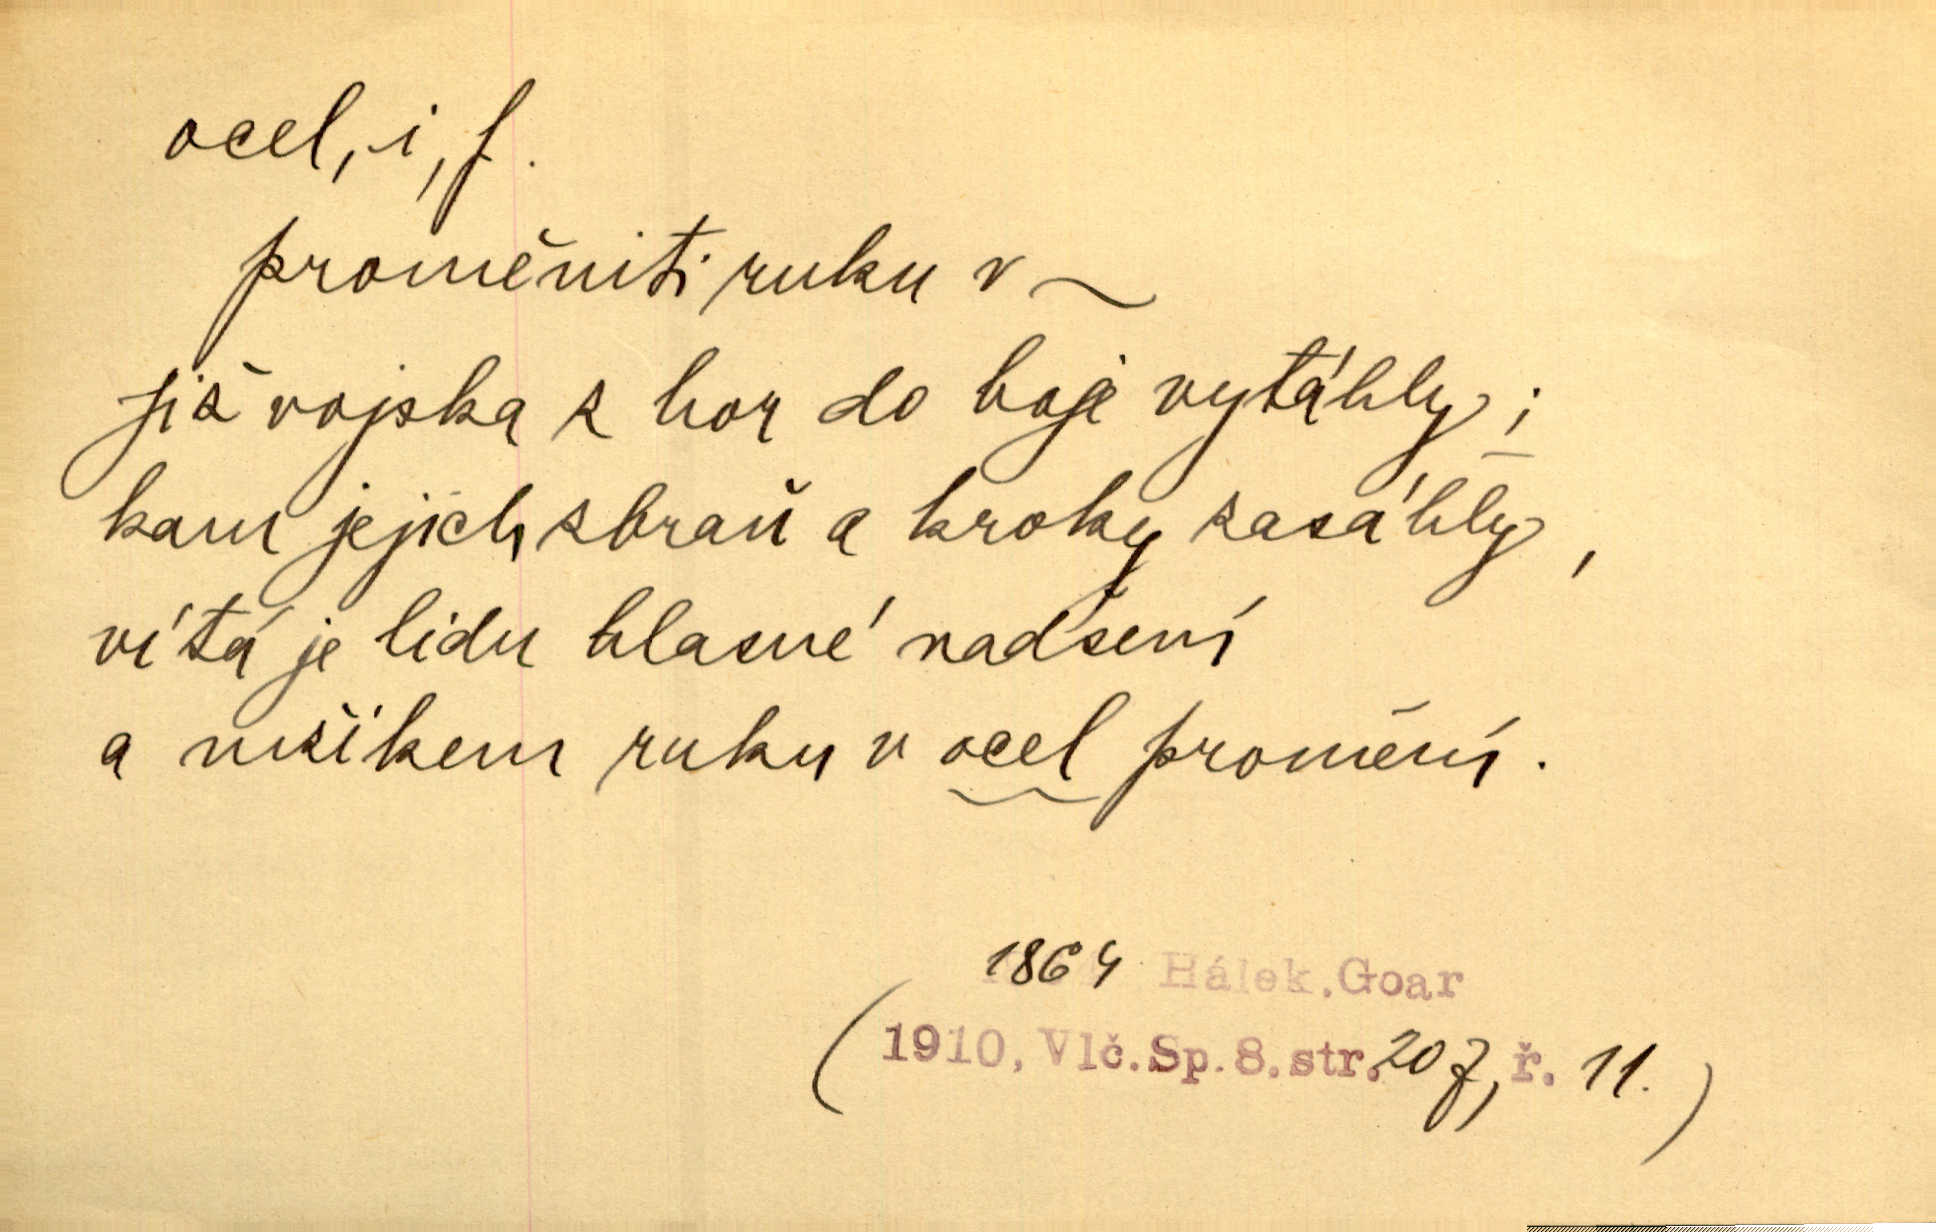 ocel, -i, f.
proměniti ruku v ~
Již vojska z hor do boje vytáhly;
kam jejich zbraň a kroky zasáhly,
vítá je lidu hlasné nadšení
a mžikem ruku v ocel promění.
1864 Hálek. Goar
(1910, Vlč. Sp. 8. str. 207, ř. 11.)